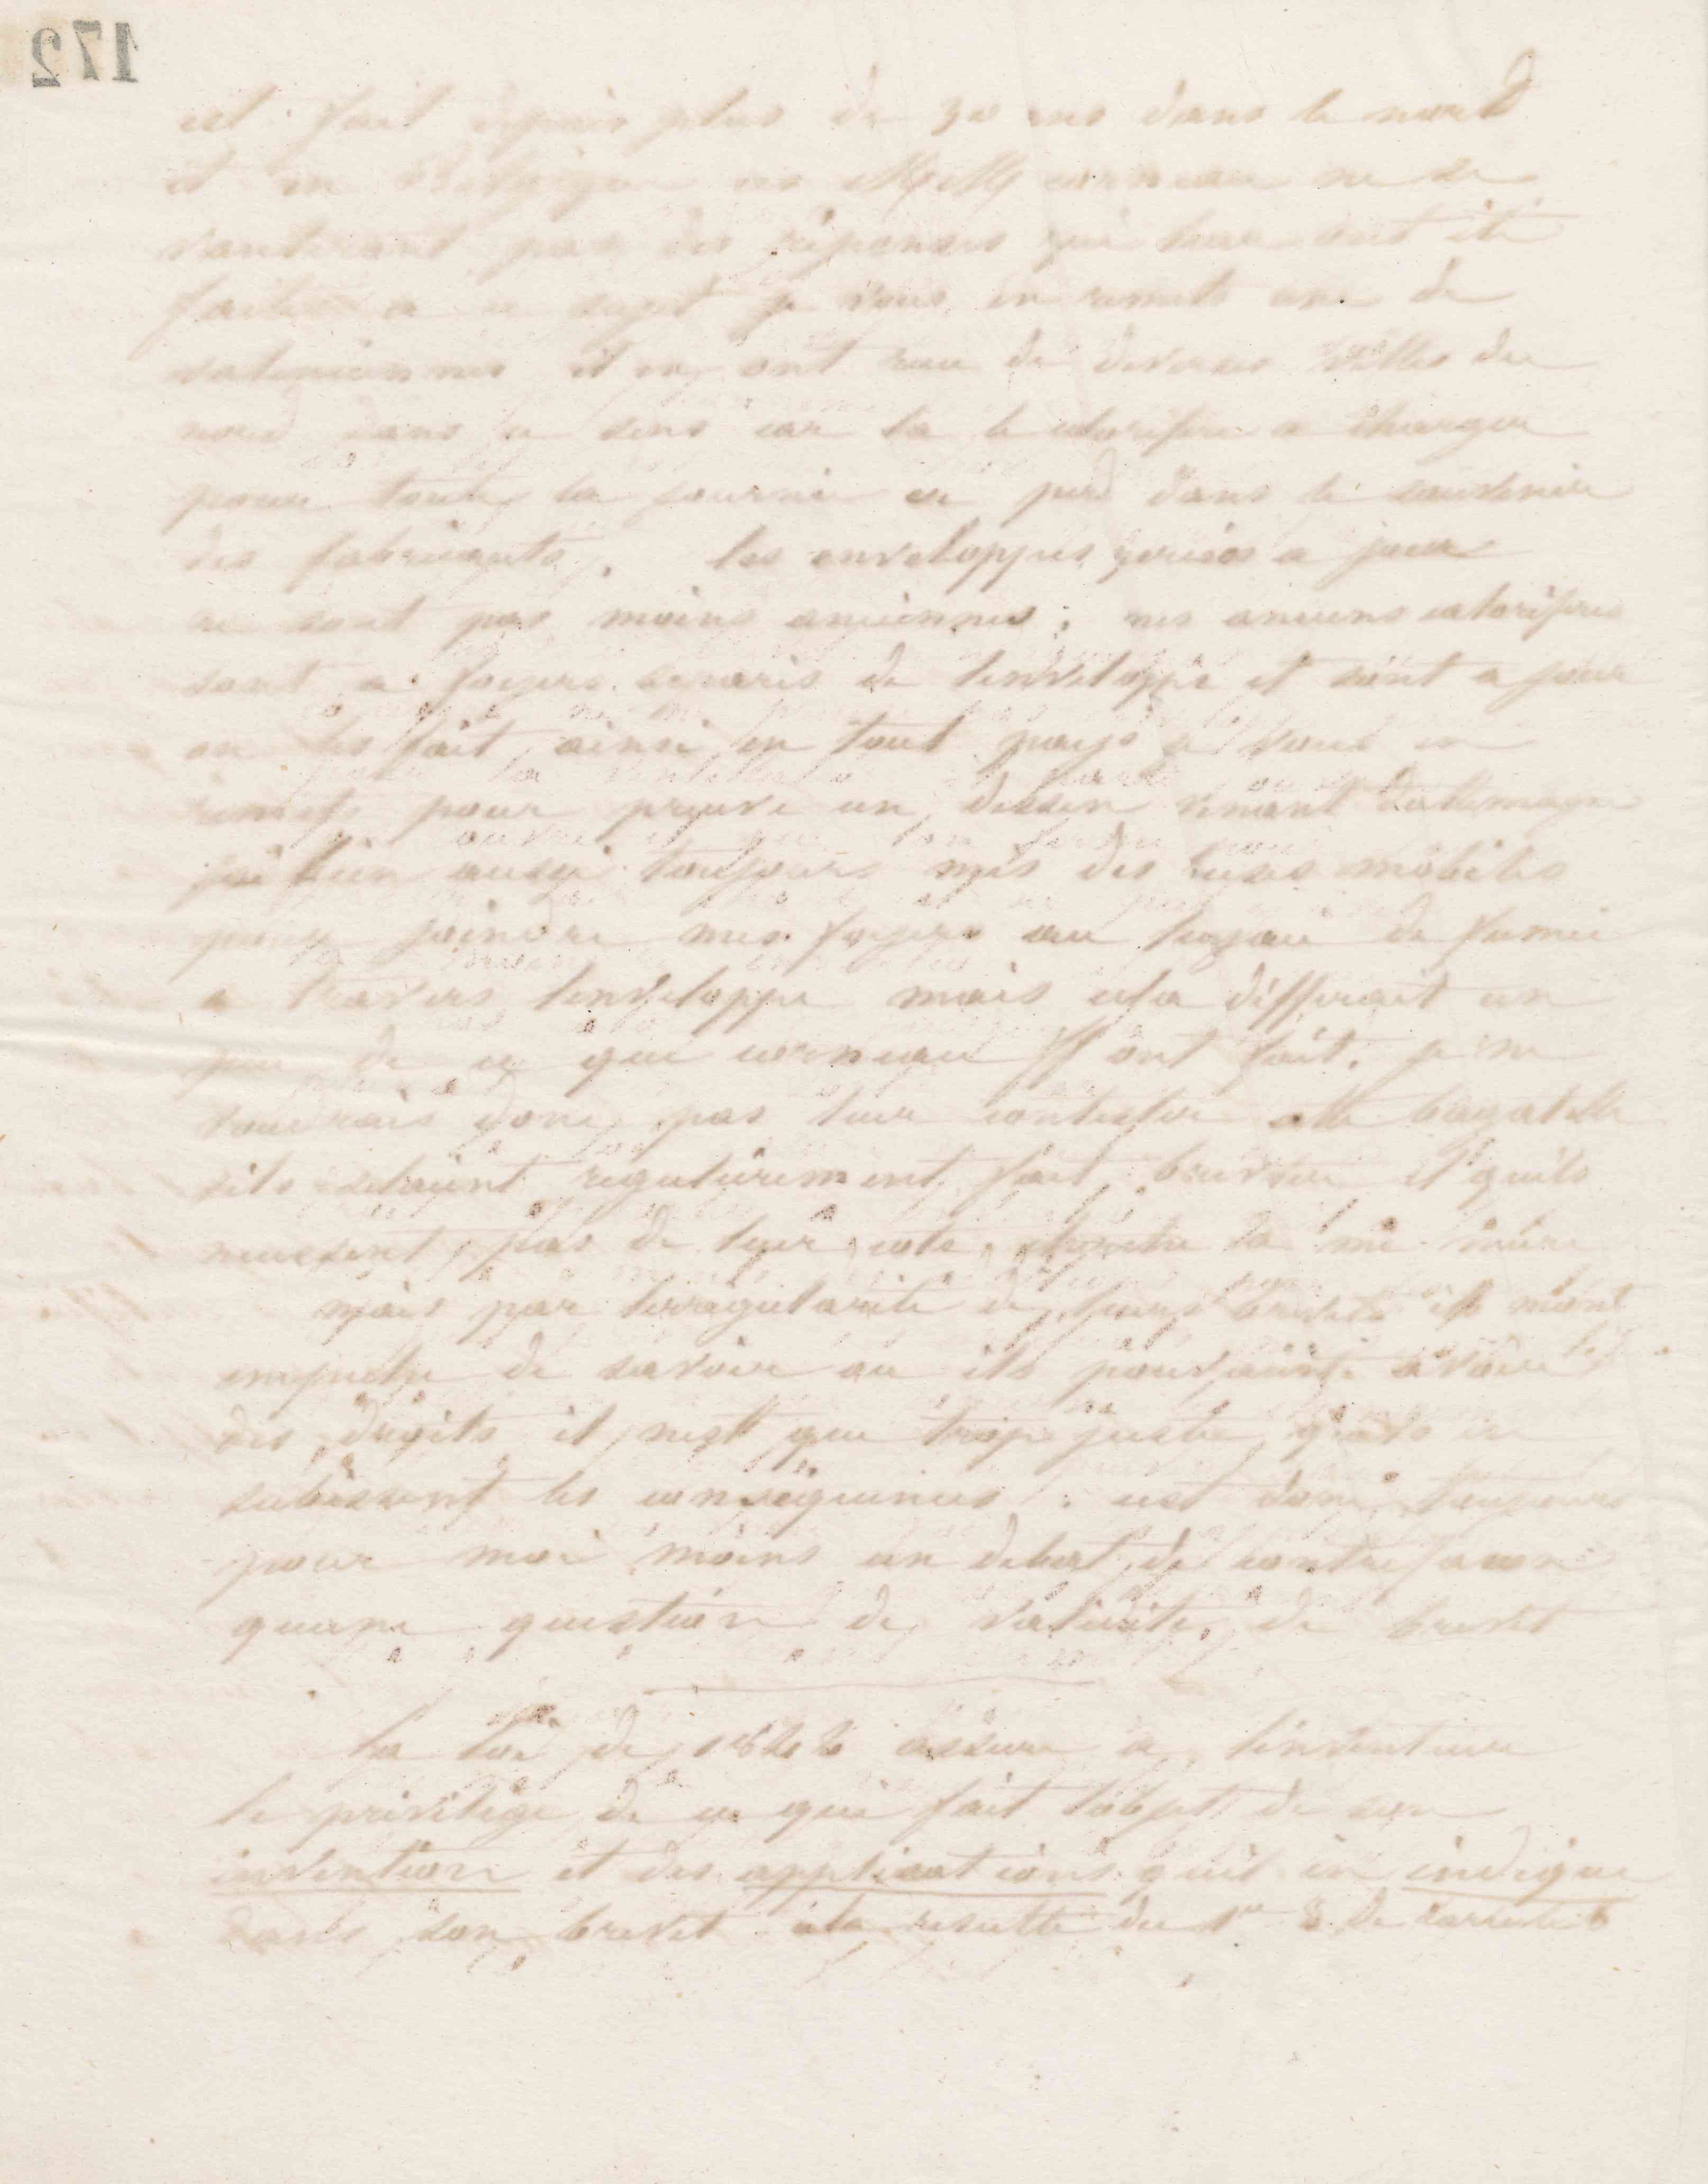 172
est fait depuis plus de 30 ans dans le nord
et en Belgique ces MM corneau ne se
vanteront pas des réponses qui leur ont été
faites a ce sujet je vous en remets une de
valenciennes et en ont recu de diverses villes du
nord dans ce sens car la le calorifere a charger
pour toute la journee se perd dans le souvenir
des fabricants. les enveloppes a jour
ne sont pas moins anciennes; mes anciens caloriferes
sont a foyers separés de lenveloppe et sont a jour
on les fait ainsi en tout pays je vous en
remets pour preuve un dessin venant dallemagne
jai bien aussi toujours mis des buses mobiles
pour joindre mes foyers au tuyau de fumée
a travers lenveloppe mais cela differait un
peu de ce que corneau ff ont fait. je ne
voudrais donc pas leur contester cette bagatelle
sils setaient regulierement fait breveter et quils
neussent pas de leur coté
mais par lirregularité de leurs brevets ils mont
empeché de savoir ou ils pouvaient avoir
des droits il nest que trop juste quils en
subissent les consequences: cest donc toujours
pour moi moins un debat de contrefacon
quune question de validité de brevet
La loi de 1844 assure a linventeur
le privilège de ce qui fait lobjet de son
invention et des applications quil en indique
dans son brevet cela resulte du 1er § de larticle